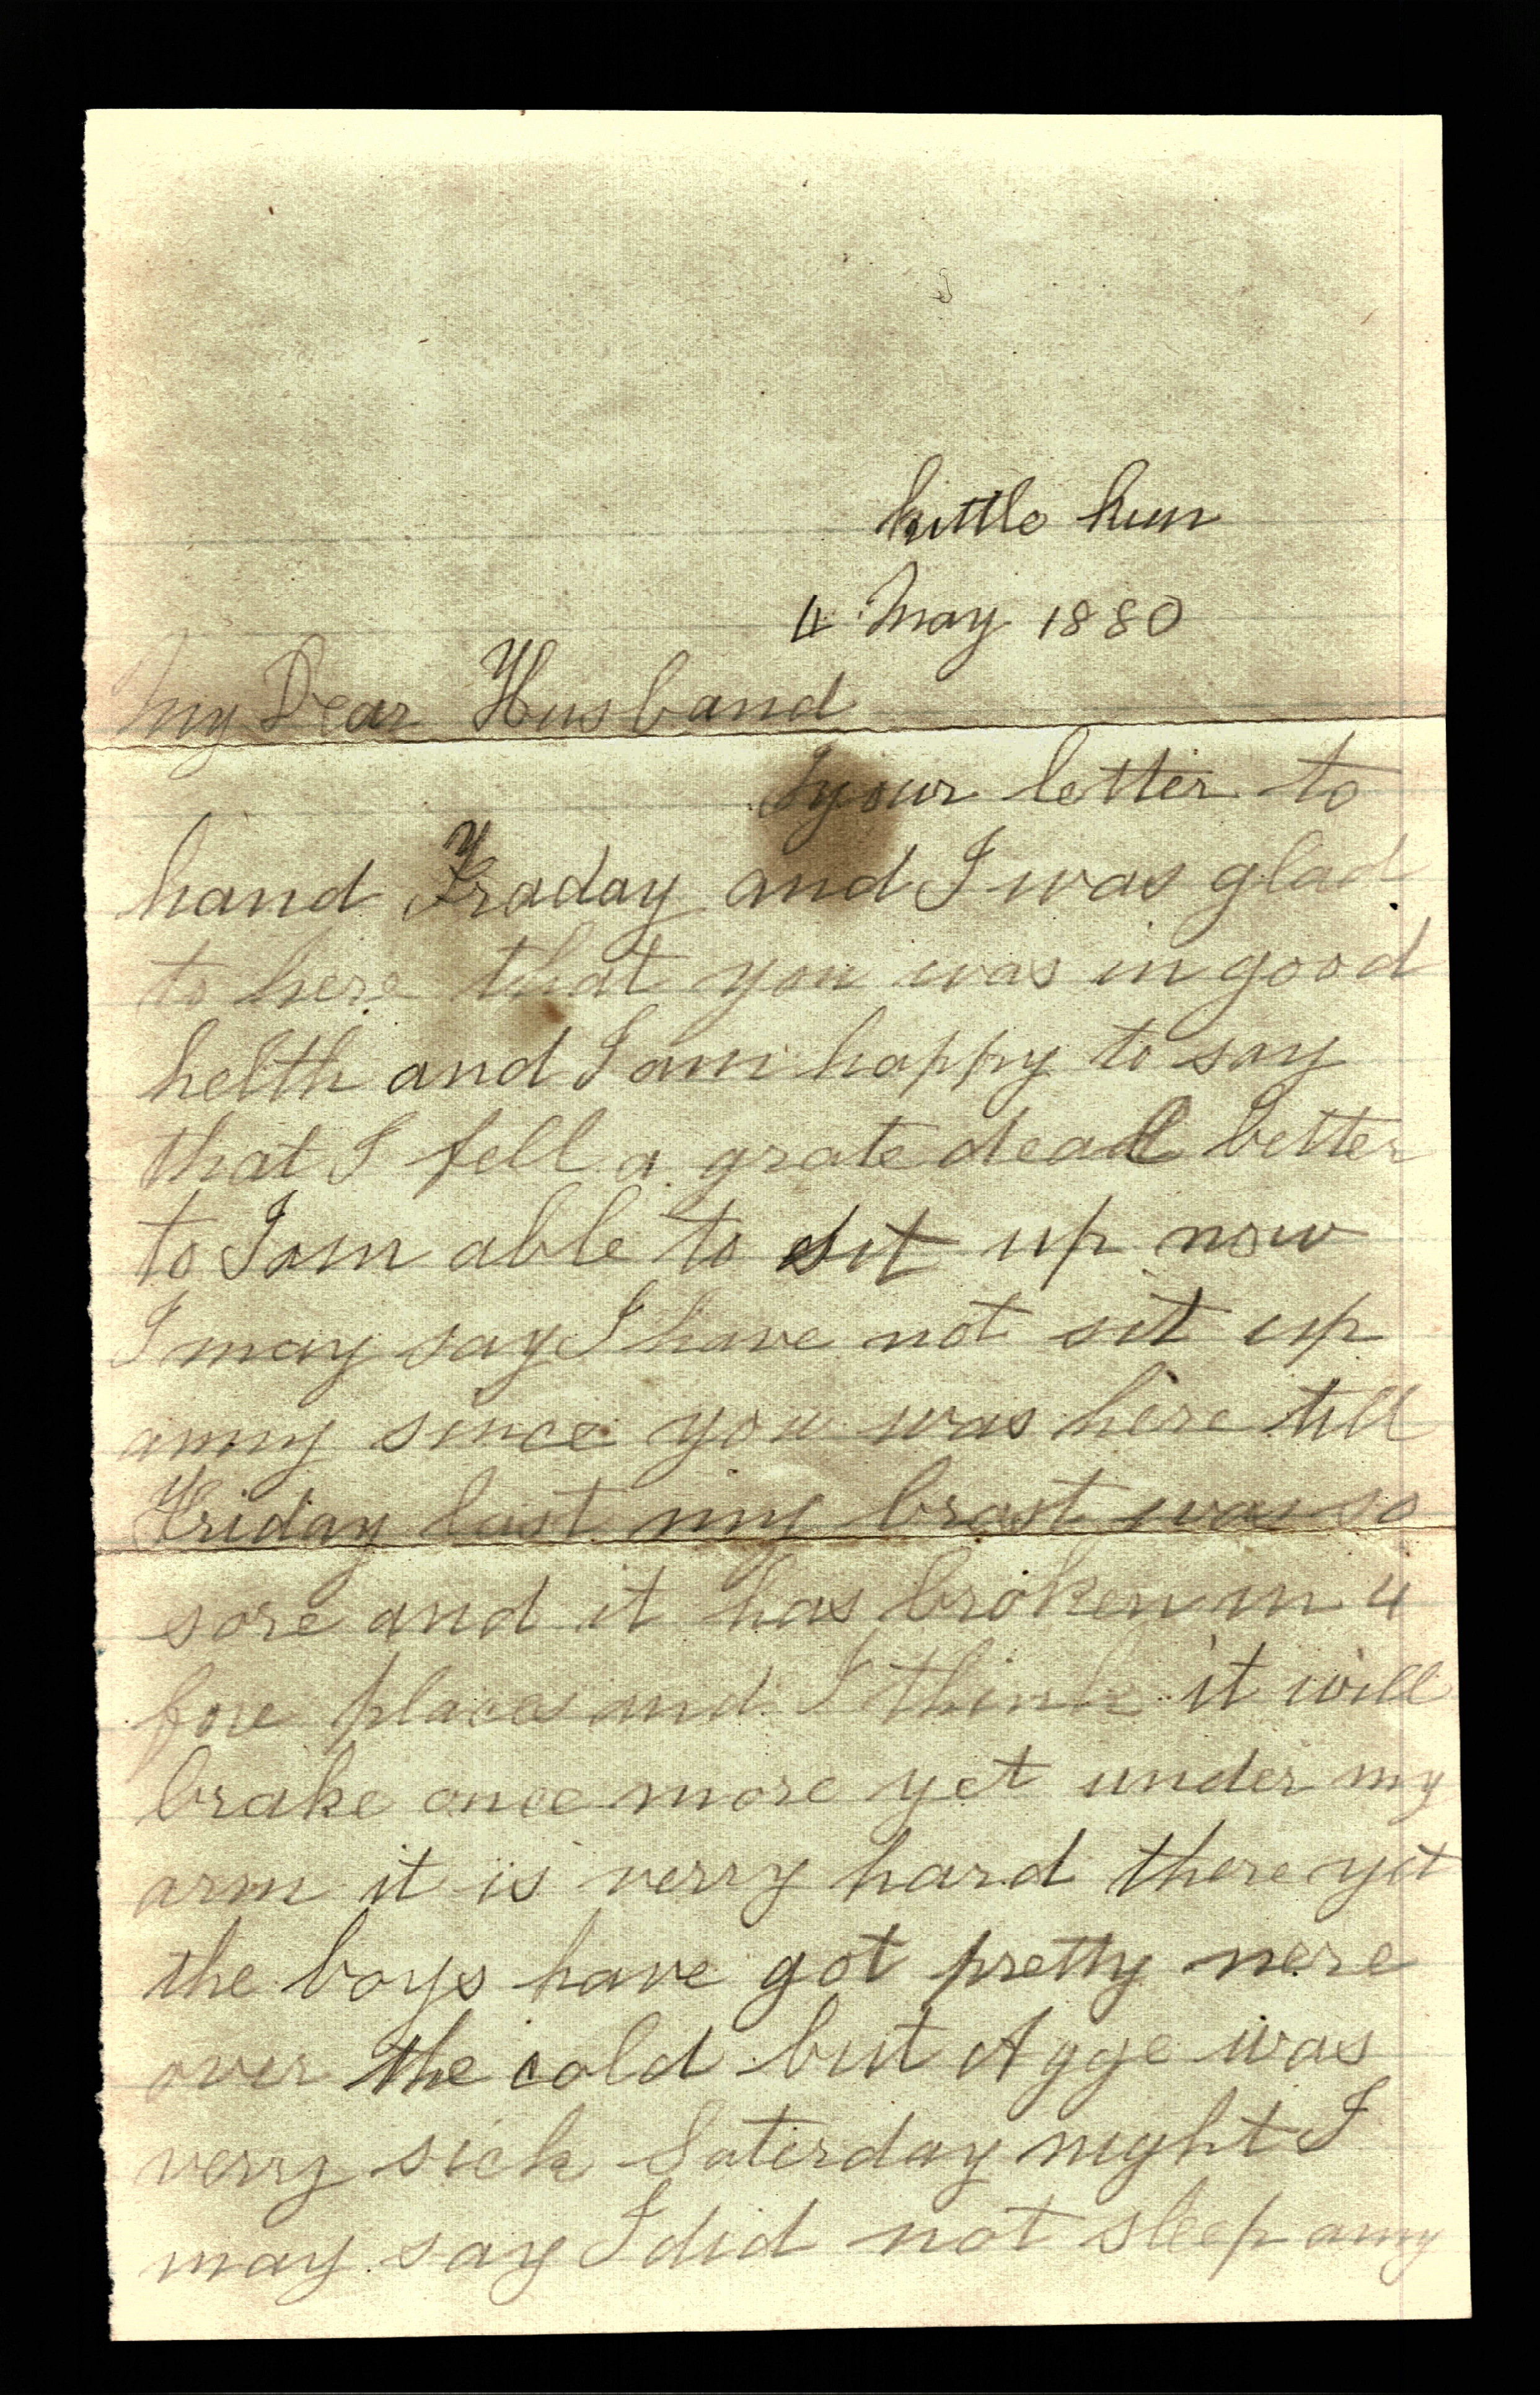 kittle Run
4 May 1880
My Dear Husband
I your letter to
hand Fraday and I was glad
to here that you was in good
helth and I am happy to say
that I fell a grate deal better
to I am able to sit up now
I may say I have not sit up
anny since you was here till
Friday last my brast was so
sore and it has broken in 4
fore places and I think it will
brake once more yet under my
arm it is verry hard there yet
the boys have got pretty nere
over the cold but Agge was
verry sick Saterday night I
may say I did not sleep anny